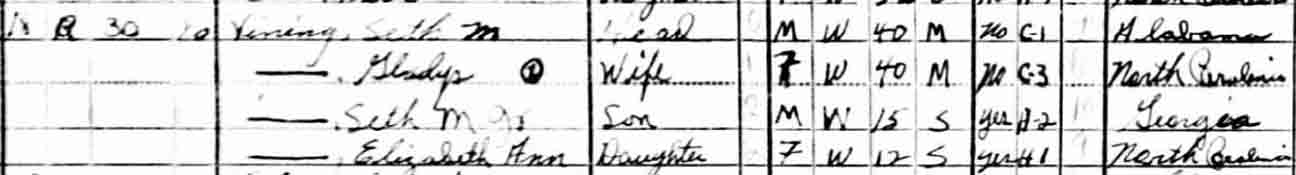 R 30 Vining, Seth M Head M W 40 M no C-1 Alabama
—, Gladys ① Wife F W 40 M No C-3 North Carolina
—, Seth M Jr Son M W 15 S yes H-2 Georgia
—, Elizabeth Ann Daughter F W 12 S yes H-1 North Carolina